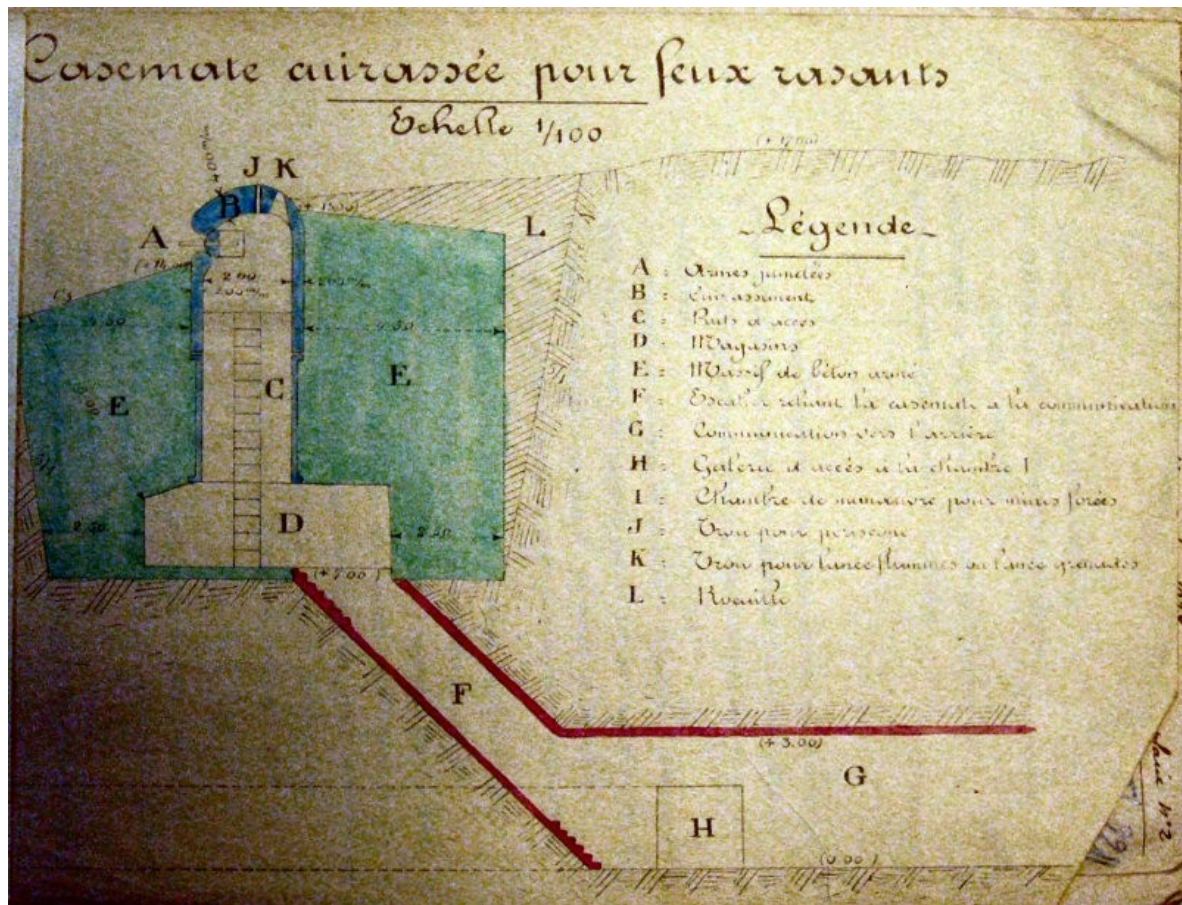 Casemate cuirassée pour feux rasants
Echelle 1/100
(+ 17.00)
J K
B
A
L
(+ 15.50)
2.00
200 m/m
200 m/m
4.50
4.50
C
E
E
2.50
D
2.50
(+ 7.00)
F
(+ 3.00)
G
H
(0.00)
Légende
A = Armes jumelées
B = Cuirassement
C = Puits d'accès
D = Magasins
E = Massif de béton armé
F = Escalier reliant la casemate à la communication
G = Communication vers l'arrière
H = Galerie d'accès à la chambre I
I = Chambre de manœuvre pour mines forées
J = Trou pour periscope
K = Trou pour lance flammes ou lance grenades
L = Rocaille
N°2